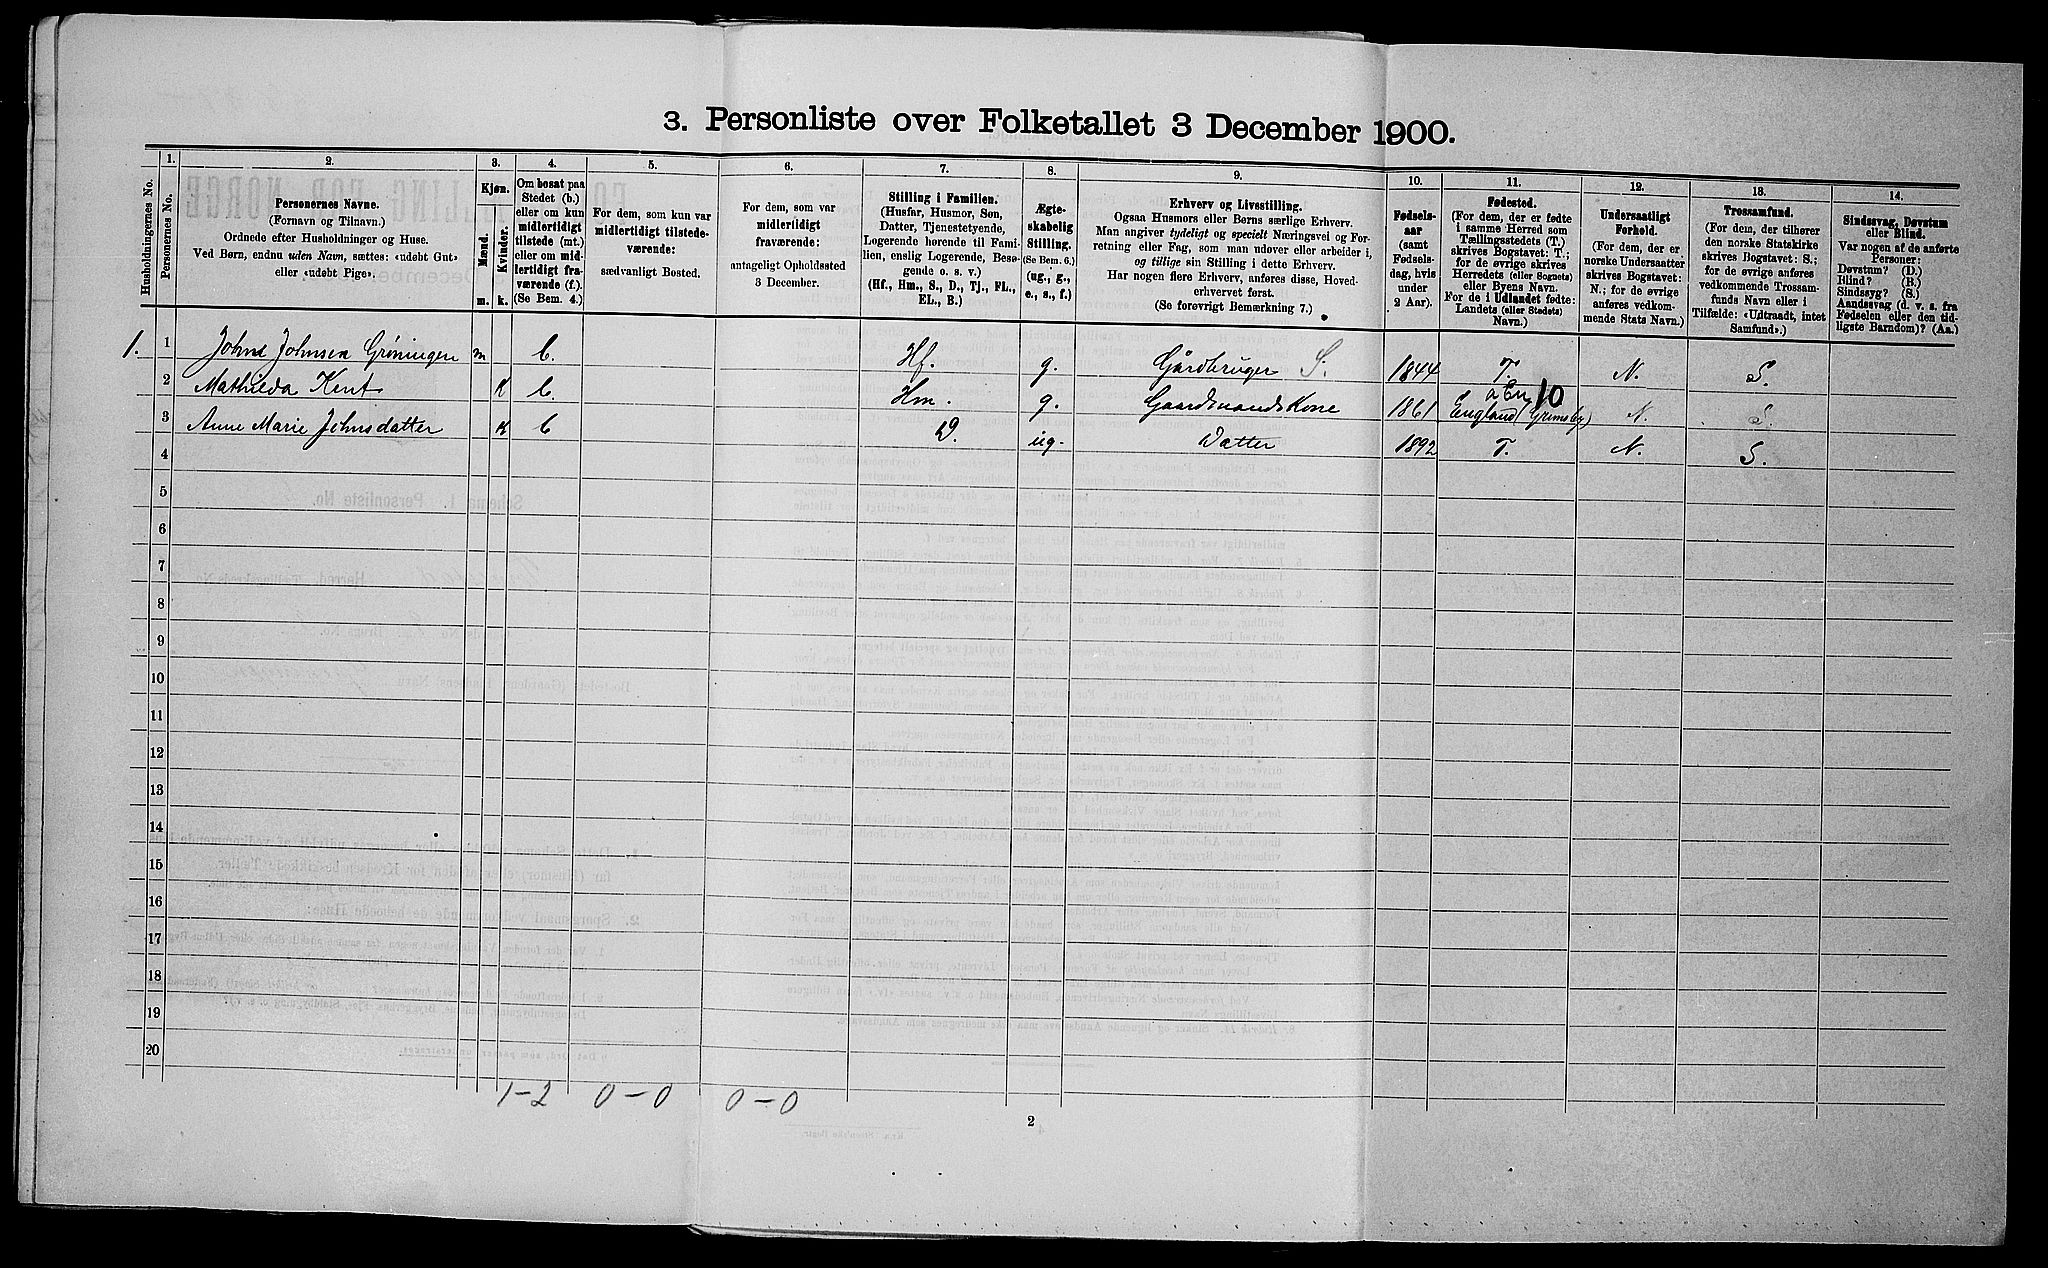 3. Personliste over Folketallet 3 December 1900.
Husholdningernes No.
1.
Personernes No.
2.
Personernes Navne.
(Fornavn og Tilnavn.)
Ordnede efter Husholdninger og Huse.
Ved Børn, endnu uden Navn, sættes: «udøbt Gut»
eller «udøbt Pige».
3.
Kjøn.
Mænd.
m.
Kvinder.
k.
4.
Om bosat paa
Stedet (b.)
eller om kun
midlertidigt
tilstede (mt.)
eller om mid-
lertidigt fra-
værende (f.).
(Se Bem. 4.)
5.
For dem, som kun var
midlertidigt tilstede-
værende:
sædvanligt Bosted.
6.
For dem, som var
midlertidigt
fraværende:
antageligt Opholdssted
3 December.
7.
Stilling i Familien.
(Husfar, Husmor, Søn,
Datter, Tjenestetyende,
Logerende hørende til Fami-
lien, enslig Logerende, Besø-
gende o. s. v.)
(Hf., Hm., S., D., Tj., FL.,
EL., B.)
8.
Ægte-
skabelig
Stilling.
(Se Bem. 6.)
(ug., g.,
e., s., f.)
9.
Erhverv og Livsstilling.
Ogsaa Husmors eller Børns særlige Erhverv.
Man angiver tydeligt og specielt Næringsvei og For-
retning eller Fag, som man udøver eller arbeider i,
og tillige sin Stilling i dette Erhverv.
Har nogen flere Erhverv, anføres disse, Hoved-
erhvervet først.
(Se forøvrigt Bemærkning 7.)
10.
Fødsels-
aar
(samt
Fødsels-
dag, hvis
under
2 Aar).
11.
Fødested.
(For dem, der er fødte
i samme Herred som
Tællingsstedets (T.)
skrives Bogstavet: T.;
for de øvrige skrives
Herredets (eller Sognets)
eller Byens Navn.
For de i Udlandet fødte:
Landets (eller Stedets)
Navn.)
12.
Undersaatligt
Forhold.
(For dem, der er
norske Undersaatter
skrives Bogstavet:
N.; for de øvrige
anføres vedkom-
mende Stats Navn.)
13.
Trossamfund.
(For dem, der tilhører
den norske Statskirke
skrives Bogstavet: S.;
for de øvrige anføres
vedkommende Trossam-
funds Navn eller i
Tilfælde: «Udtraadt, intet
Samfund».)
14.
Sindssvag, Døvstum
eller Blind.
Var nogen af de anførte
Personer:
Døvstum? (D.)
Blind? (B.)
Sindssyg? (S.)
Aandssvag (d. v. s. fra
Fødselen eller den tid-
ligste Barndom)? (Aa.)
1. 1 John Johnsen Gröningen m b. Hf. g. Gårdbruger S. 1844 T. N. S.
2 En 10
2 Mathilda Kent K b. Hm. g. Gaardmandskone 1861 England (Grimsby) N. S.
3 Anne Marie Johnsdatter K b D. ug. Datter 1892 T. N. S.
4
5
6
7
8
9
10
11
12
13
14
15
16
17
18
19
20
1–2 0–0 0–0
2